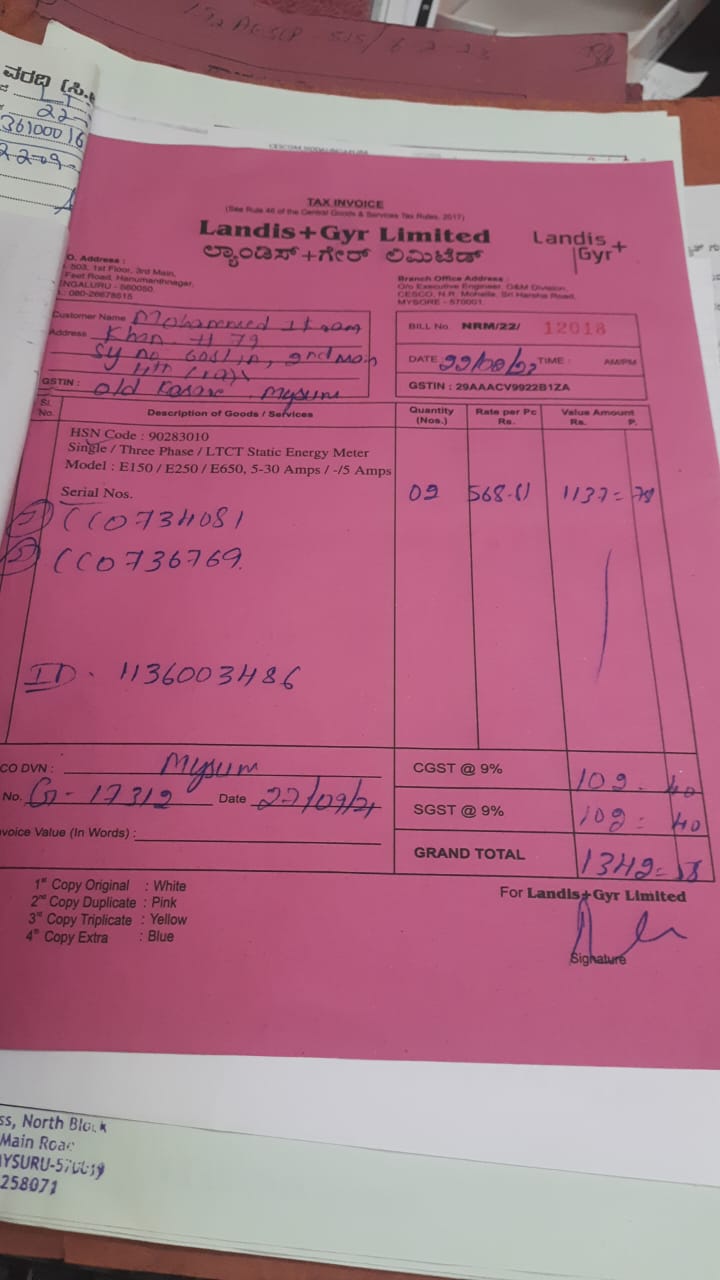 ವರದಿ (ಸಿ.
22-
36100016
22-09-
TAX INVOICE
(See Rule 46 of the Central Goods & Services Tax Rules, 2017)
Landis+Gyr Limited
ಲ್ಯಾಂಡಿಸ್+ಗೇರ್ ಲಿಮಿಟೆಡ್
Landis+
Gyr
O. Address :
503, 1st Floor, 3rd Main,
Feet Road, Hanumanthnagar,
NGALURU - 560050.
: 080-26678615
Branch Office Address :
O/o Executive Engineer, O&M Division,
CESCO, N.R. Mohalla, Sri Harsha Road,
MYSORE - 570001.
Customer Name Mohammed
Address Khan # 79
Sy no 2nd Main
GSTIN : old Mysuru
BILL No. NRM/22/ 12018
DATE : TIME : AM/PM
GSTIN : 29AAACV9922B1ZA
Sl. No. Description of Goods / Services Quantity (Nos.) Rate per Pc Rs. Value Amount Rs. P.
HSN Code : 90283010
Single / Three Phase / LTCT Static Energy Meter
Model : E150 / E250 / E650, 5-30 Amps / -/5 Amps
Serial Nos. 02 568.81 1137=78
CC0734081
CC0736769.
ID. 1136003486
CO DVN : Mysuru
No. G-17312 Date 27/09/21
nvoice Value (In Words) :
CGST @ 9% 102. 40
SGST @ 9% 102= 40
GRAND TOTAL 1342=58
1st Copy Original : White
2nd Copy Duplicate : Pink
3rd Copy Triplicate : Yellow
4th Copy Extra : Blue
For Landis+Gyr Limited
Signature
ss, North Block
Main Road
MYSURU-570019
258071